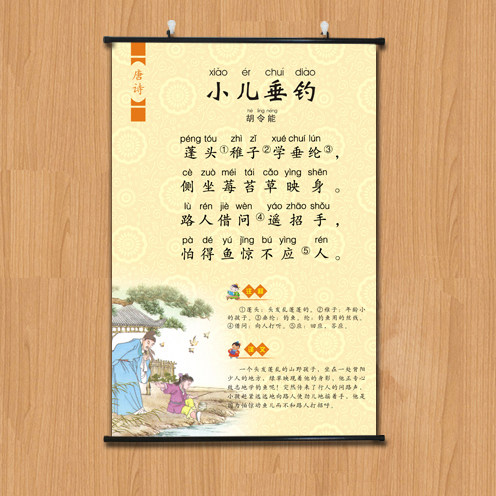 唐诗
xiǎo ér chuí diào
小儿垂钓
hú lìng néng
胡令能
péng tóu zhì zǐ xué chuí lún
蓬头①稚子②学垂纶③，
cè zuò méi tái cǎo yìng shēn
側坐莓苔草映身。
lù rén jiè wèn yáo zhāo shǒu
路人借问④遥招手，
pà dé yú jīng bú yìng rén
怕得鱼惊不应⑤人。
注释
①蓬头：头发乱蓬蓬的，②稚子：年龄小
的孩子，③垂纶：钓鱼，纶：钓鱼用的丝线。
④借问：向人打听。⑤应：回应，答应。
译文
一个头发蓬乱的山野孩子，坐在一处背阳
少人的地方，绿草映现着他的身影，他正专心
致志地学钓鱼呢！突然传来了行人的问路声，
小孩赶紧远远地向路人使劲儿地摇着手，他是
因为怕惊动鱼儿而不和路人打招呼。